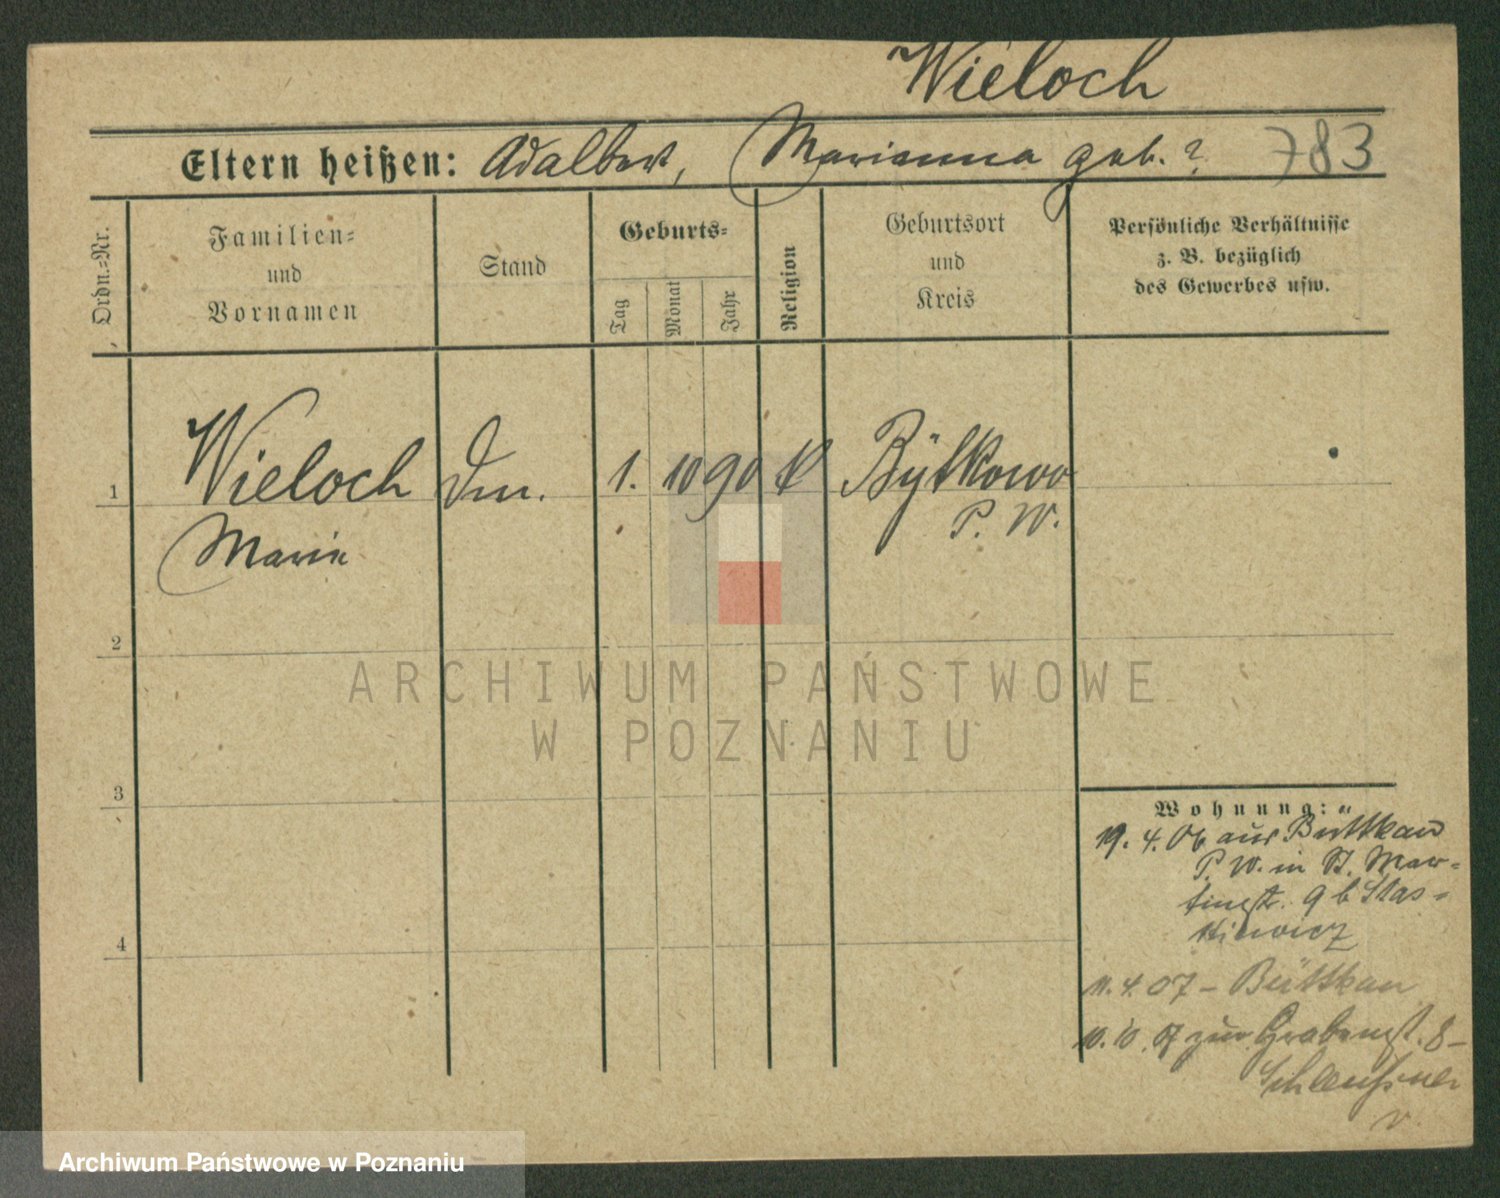 Wieloch
Eltern heißen: Adalbert, Marianna geb. ? 783
Ordn.-Nr.
Familien-
und
Vornamen
Stand
Geburts-
Tag
Monat
Jahr
Religion
Geburtsort
und
Kreis
Persönliche Verhältnisse
z. B. bezüglich
des Gewerbes usw.
1 Wieloch Dm. 1. 10 90 K Bytkowo
P. W.
Marie
2
3
4
ARCHIWUM PAŃSTWOWE
W POZNANIU
Wohnung:
19. 4. 06 aus Büttkau
P. W. in St. Mar-
tinstr. 9 b Stas-
kiewicz
11. 4. 07 – Büttkau
10. 10. 07 zur Grabenst. 8 –
Schleussner
Archiwum Państwowe w Poznaniu